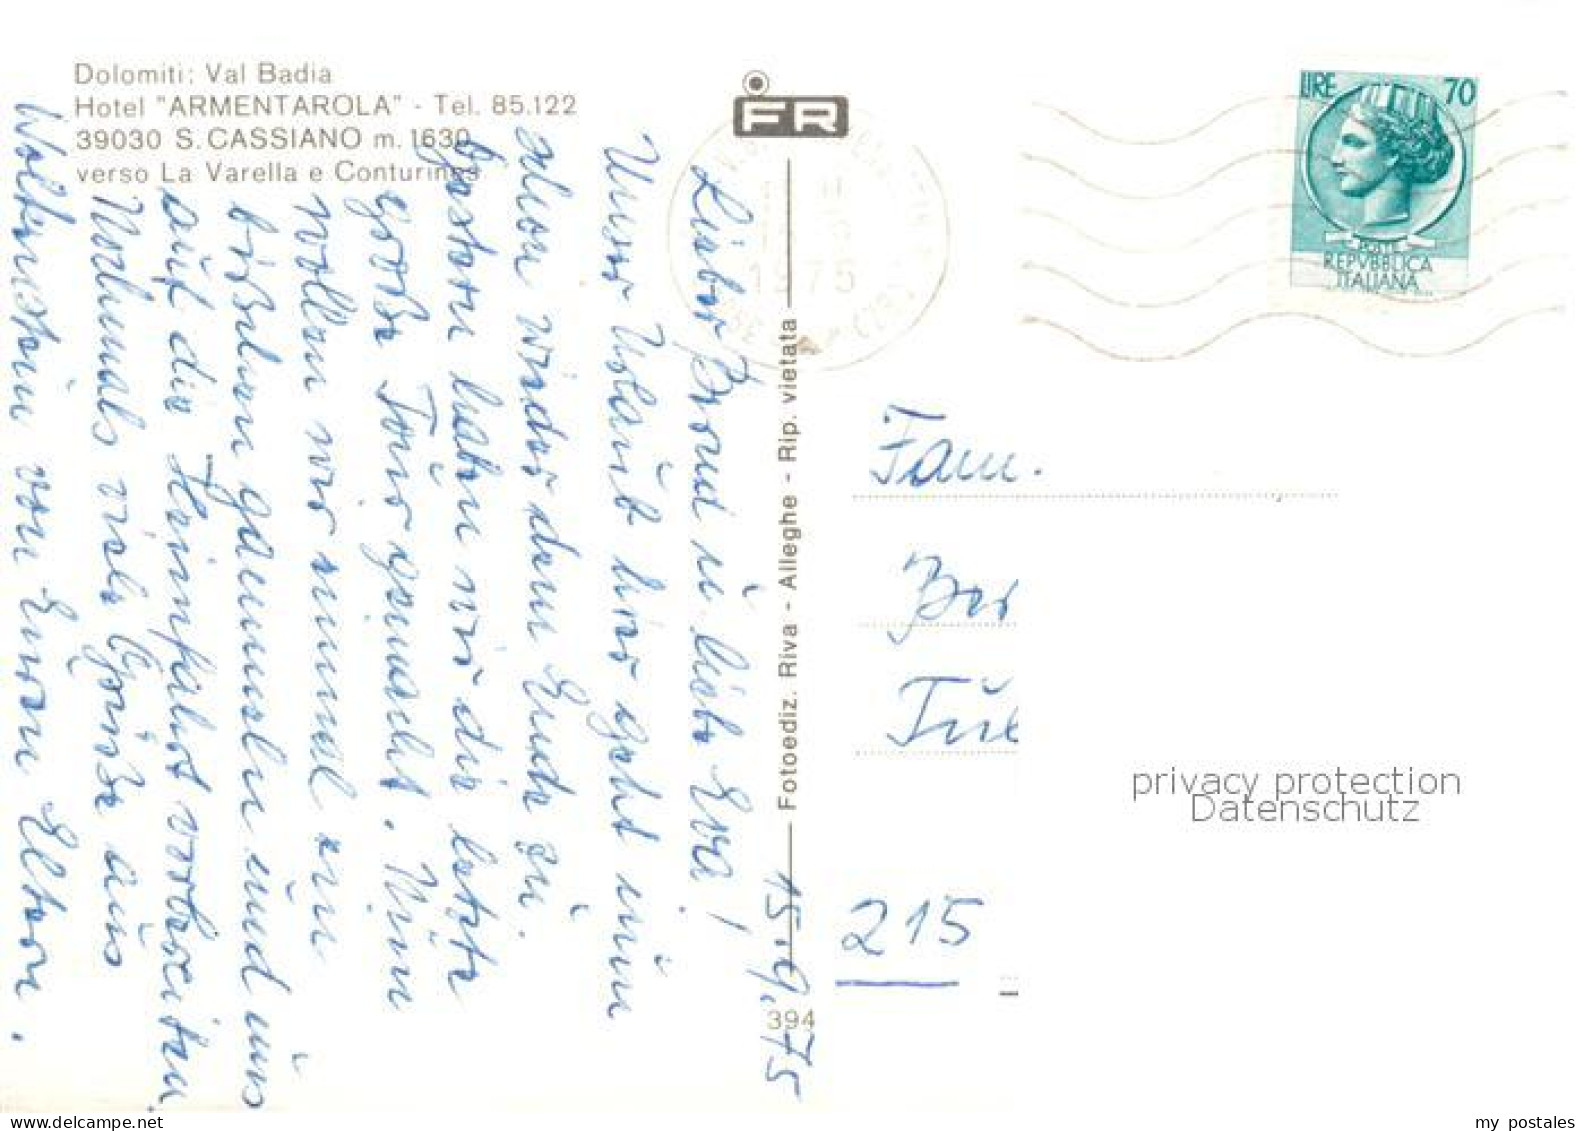 Dolomiti: Val Badia
Hotel "ARMENTAROLA" - Tel. 85.122
39030 S. CASSIANO m. 1630
verso La Varella e Conturines
FR
LIRE 70
POSTE
REPVBBLICA
ITALIANA
1975
Fotoediz. Riva - Alleghe - Rip. vietata
394
15.9.75
Lieber Bernd u. liebe Eva!
Unser Urlaub hier geht nun
schon wieder dem Ende zu.
Gestern haben wir die letzte
große Tour gemacht. Nun
wollen wir einmal ein
bißchen gammeln und uns
auf die Heimfahrt vorbereiten.
Nochmals viele Grüße aus
Wolkenstein von Euren Eltern.
Fam.
Ber
Tü
215
privacy protection
Datenschutz
my postales